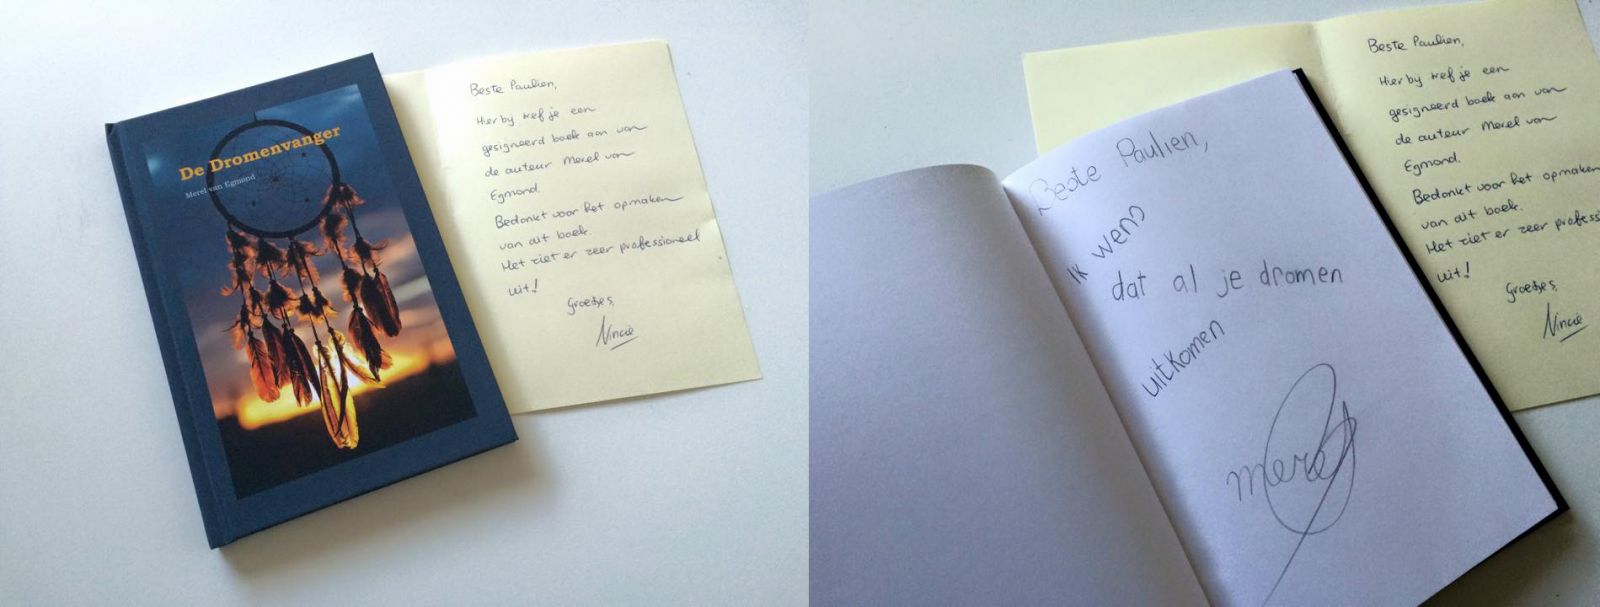 De Dromenvanger
Merel van Egmond
Beste Paulien,
Hierby tref je een
gesigneerd boek aan van
de auteur Merel van
Egmond.
Bedankt voor het opmaken
van dit boek.
Het ziet er zeer professioneel
uit!
Groetjes,
Beste Paulien,
Ik wens
dat al je dromen
uitkomen
Merel
Beste Paulien,
Hierby tref je een
gesigneerd boek aan van
de auteur Merel van
Egmond.
Bedankt voor het opmaken
van dit boek.
Het ziet er zeer professi
uit!
Groetjes,